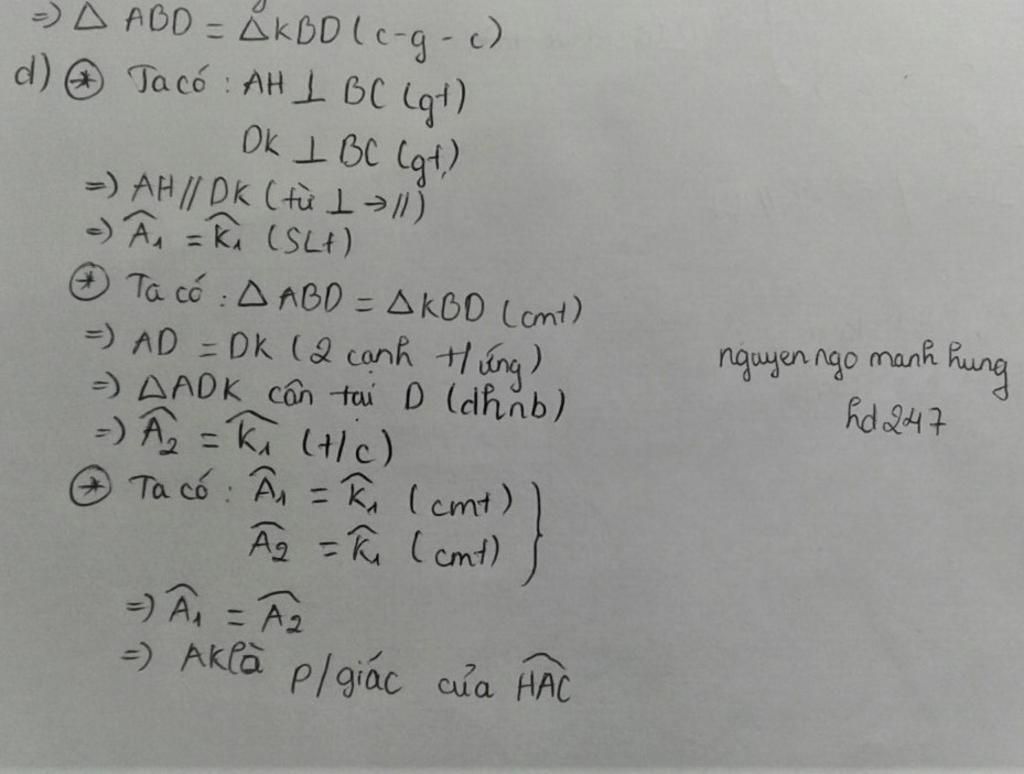 =) △ ABD = △KBD (c-g-c)
d) * Ta có : AH ⊥ BC (gt)
DK ⊥ BC (gt)
=) AH // DK (từ ⊥ → //)
=) Â₁ = K̂₁ (SLt)
* Ta có : △ ABD = △KBD (cmt)
=) AD = DK (2 cạnh t/ứng)
=) △ADK cân tại D (dhnb)
=) Â₂ = K̂₁ (t/c)
* Ta có : Â₁ = K̂₁ (cmt) }
Â₂ = K̂₁ (cmt)
=) Â₁ = Â₂
=) AK là p/giác của HAC
nguyen ngo manh hung
hd247